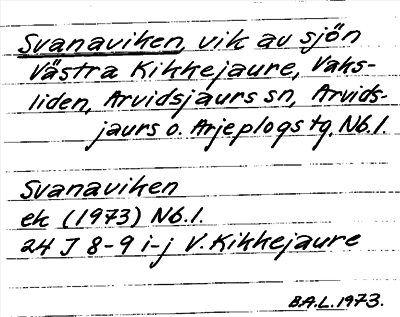 Svanaviken, vik av sjön
Västra Kikkejaure, Vaks-
liden, Arvidsjaurs sn, Arvids-
jaurs o. Arjeplogs tg, Nb.l.
Svanaviken
ek (1973) Nb.l.
24 J 8-9 i-j V. Kikkejaure
B.A.L. 1973.